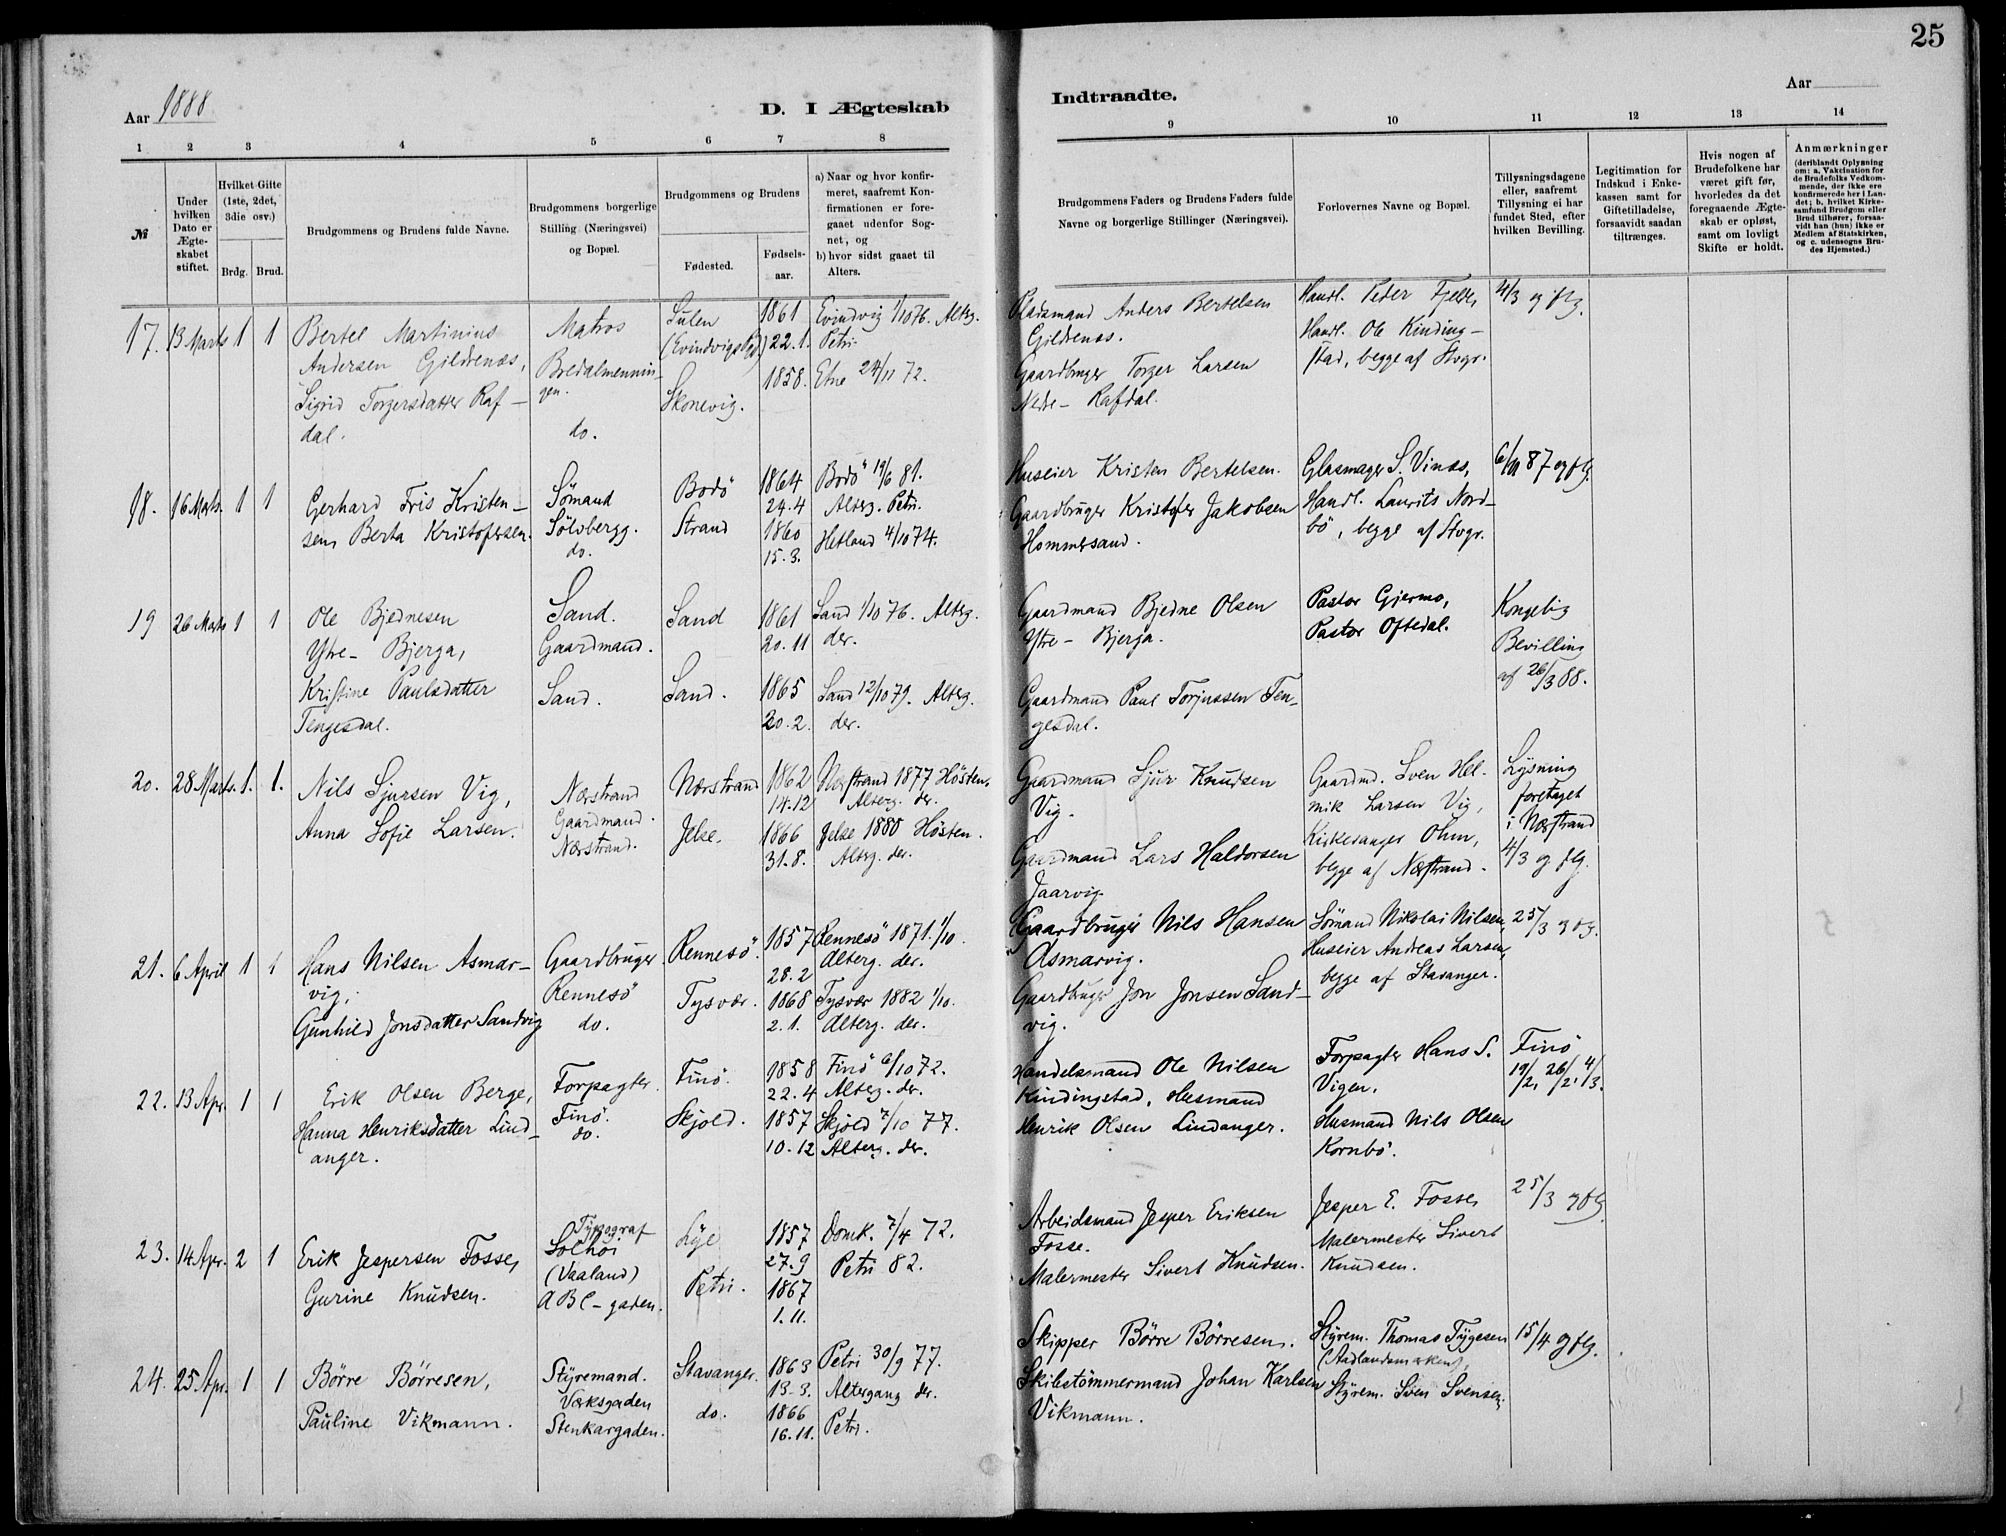 25
Aar 1888
D. I Ægteskab
Indtraadte.
Aar
1 2 3 4 5 6 7 8
9 10 11 12 13 14
№
Under hvilken Dato er Ægteskabet stiftet.
Hvilket Gifte (1ste, 2det, 3die osv.)
Brdg. Brud.
Brudgommens og Brudens fulde Navne.
Brudgommens borgerlige Stilling (Næringsvei) og Bopæl.
Brudgommens og Brudens
Fødested.
Fødselsaar.
a) Naar og hvor konfirmeret, saafremt Konfirmationen er foregaaet udenfor Sognet, og
b) hvor sidst gaaet til Alters.
Brudgommens Faders og Brudens Faders fulde Navne og borgerlige Stillinger (Næringsvei).
Forlovernes Navne og Bopæl.
Tillysningsdagene eller, saafremt Tillysning ei har fundet Sted, efter hvilken Bevilling.
Legitimation for Indskud i Enkekassen samt for Giftetilladelse, forsaavidt saadan tiltrænges.
Hvis nogen af Brudefolkene har været gift før, hvorledes da det foregaaende Ægteskab er opløst, samt om lovligt Skifte er holdt.
Anmærkninger
(deriblandt Oplysning om: a. Vakcination for de Brudefolks Vedkommende, der ikke ere konfirmerede her i Landet; b. hvilket Kirkesamfund Brudgom eller Brud tilhører, forsaavidt han (hun) ikke er Medlem af Statskirken, og c. udensogns Brudes Hjemsted.)
17. 13 Marts 1 1
Bertel Martinius
Andersen Gildrenæs,
Sigrid Torgersdatter Raf-
dal.
Matros
Bredalmennin-
gen.
do.
Sulen
(Evindvigs Pgd)
Skonevig.
1861
22.1.
1858.
Evindvig 1/10 76. Alterg.
Petri
Etne 24/11 72.
Pladsmand Anders Bertelsen
Gildrenæs.
Gaardbruger Torger Larsen
Nedre- Rafdal.
Handl. Peder Fjelde,
Handl. Ole Kinding-
stad, begge af Stvgr.
4/3 og flg.
18. 16 Marts. 1 1
Gerhard Fris Kristen-
sen, Berta Kristofersen.
Sømand
Sølvbergg.
do.
Bodö
Strand
1864
24.4
1860
15.3.
Bodö 19/6 81.
Alterg. Petri.
Hetland 4/10 74.
Huseier Kristen Bertelsen.
Gaardbruger Kristofer Jakobsen
Hommersand.
Glasmager S. Vinæs,
Handl. Laurits Nord-
bö, begge af Stvgr.
6/11 87 og flg.
19 26 Marts 1 1
Ole Bjednesen
Ytre- Bjerga,
Kristine Paulsdatter
Tengesdal.
Sand.
Gaardmand.
Sand.
Sand
Sand.
1861
20.11
1865
20.2.
Sand 1/10 76. Alterg.
der.
Sand 12/10 79. Alterg.
der.
Gaardmand Bjedne Olsen
Ytre- Bjerga.
Gaardmand Paul Torjussen Ten-
gesdal.
Pastor Gjermo,
Pastor Oftedal.
Kongelig
Bevilling
af 26/3 88.
20. 28 Marts. 1. 1.
Nils Sjursen Vig,
Anna Sofie Larsen.
Nærstrand
Gaardmand.
Nærstrand.
Nærstrand
Jelse.
1862
14.12
1866
31.8.
Nærstrand 1877 Hösten.
Alterg. der.
Jelse 1880 Hösten.
Alterg. der.
Gaardmand Sjur Knudsen
Vig.
Gaardmand Lars Haldorsen
Jaarvig.
Gaardmd. Sven Hel-
mik Larsen Vig,
Kirkesanger Ohm,
begge af Nærstrand.
Lysning
foretaget
i Nærstrand
4/3 og flg.
21. 6 April 1 1
Hans Nilsen Asmar-
vig,
Gunhild Jonsdatter Sandvig
Gaardbruger
Rennesö
do.
Rennesö.
Tysvær.
1857
28.2
1868
2.1.
Rennesö 1871. 1/10.
Alterg. der.
Tysvær 1882 1/10.
Alterg. der.
Gaardbruger Nils Hansen
Asmarvig.
Gaardbruger Jon Jonsen Sand-
vig.
Sömand Nikolai Nilsen,
Huseier Andreas Larsen,
begge af Stavanger.
25/3 og flg.
22. 13 Apr. 1 1
Erik Olsen Berge,
Hanna Henriksdatter Lind-
anger.
Forpagter.
Finö.
do.
Finö.
Skjold.
1858
22.4
1857
10.12
Finö 6/10 72.
Alterg. der.
Skjold 7/10 77.
Alterg. der.
Handelsmand Ole Nilsen
Kindingstad, Husmand
Henrik Olsen Lindanger.
Forpagter Hans S.
Vigen,
Husmand Nils Olsen
Kornbö.
Finö
19/2, 26/2, 4/3.
23. 14 Apr. 2 1
Erik Jespersen Fosse,
Gurine Knudsen.
Typograf
Solhöi
(Vaaland)
ABC-gaden.
Lye
Petri.
1857
27.9
1867
1.11.
Domk. 7/4 72.
Petri 82.
Arbeidsmand Jesper Eriksen
Fosse.
Malermester Sivert Knudsen.
Jesper E. Fosse,
Malermester Sivert
Knudsen.
25/3 og flg.
24. 25. Apr. 1 1
Börre Börresen,
Pauline Vikmann.
Styremand.
Væksgaden
Stenkargaden.
Stavanger.
do.
1863
13.3.
1866
16.11.
Petri 30/9 77.
Altergang der.
Petri.
Skipper Börre Börresen.
Skibstömmermand Johan Karlsen
Vikmann.
Styrem. Thomas Tygesen
(Aadlandsmarken),
Styrem. Sven Svensen.
15/4 og flg.